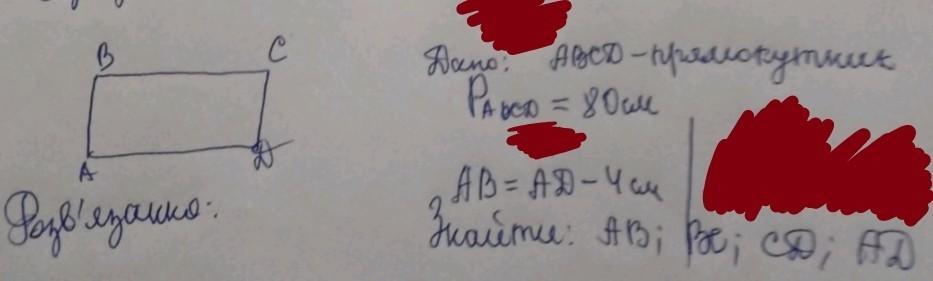 B C
A D
Дано: ABCD - прямокутник
P ABCD = 80 см
AB = AD - 4 см
Знайти: AB; BC; CD; AD
Розв'язання: